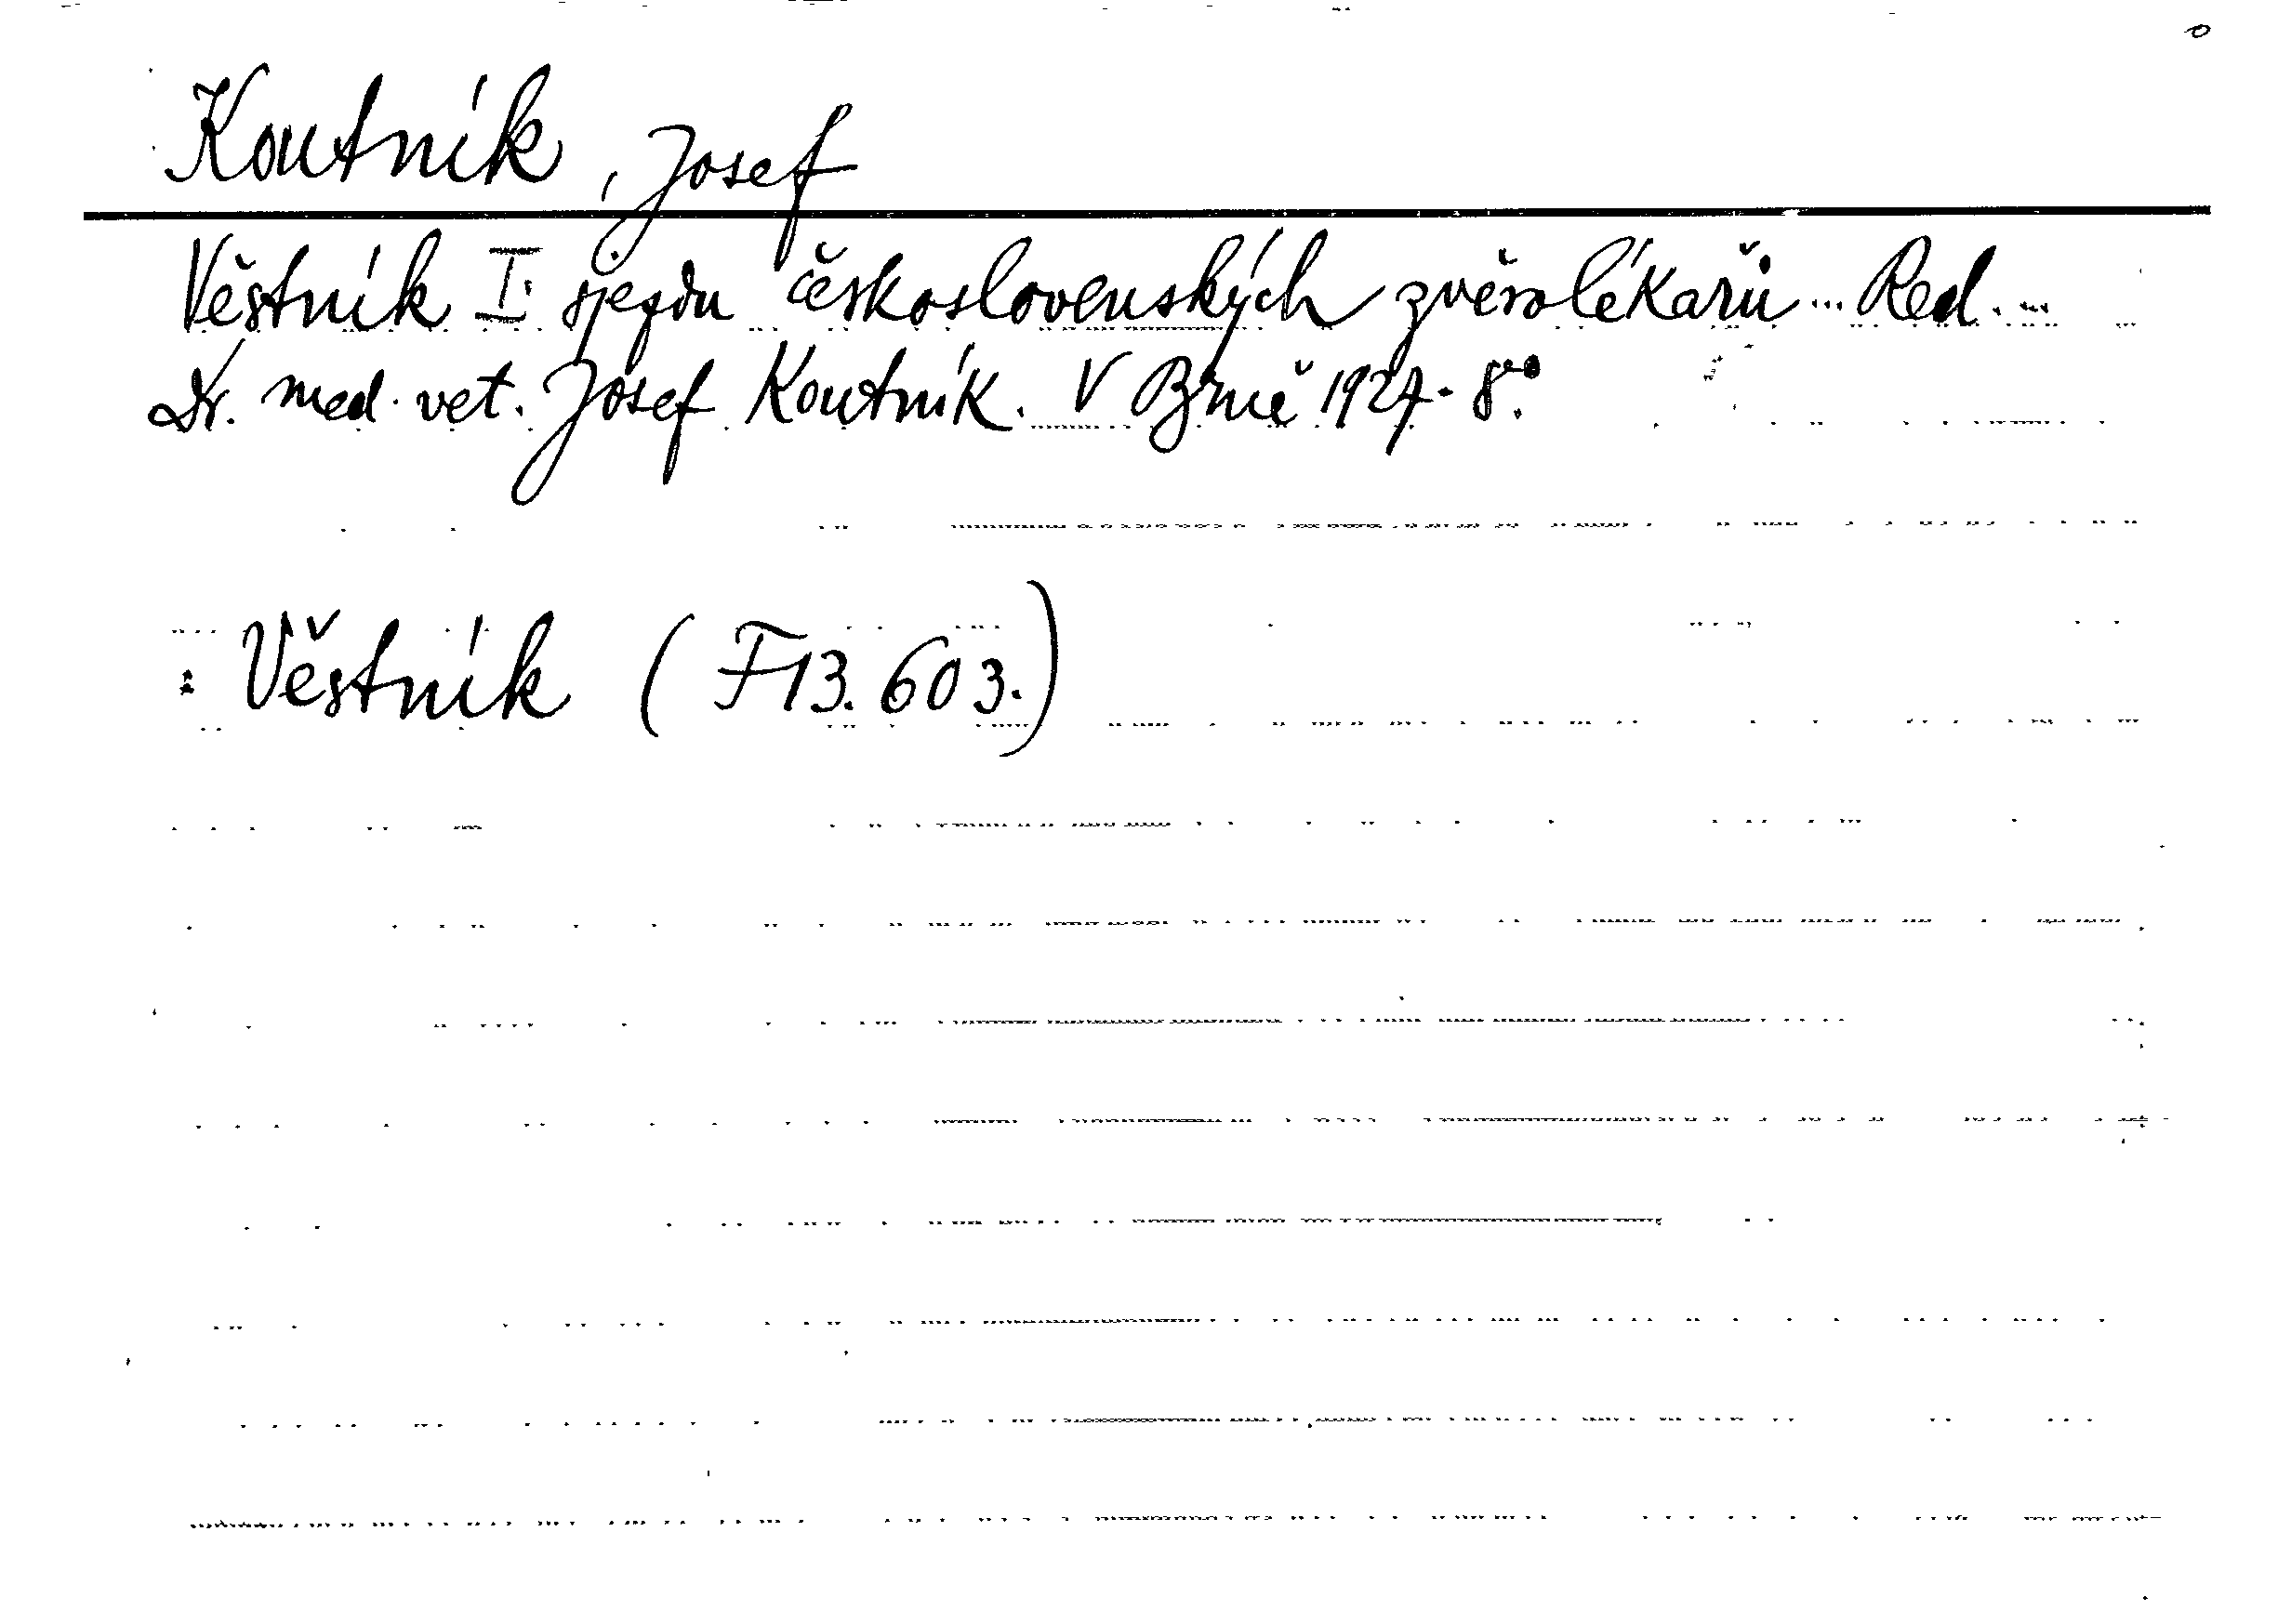 Koutník, Josef
Věstník I. sjezdu československých zvěrolékařů... Red...
Dr. med. vet. Josef Koutník. V Brně 1927. 8°.
: Věstník (F13.603.)